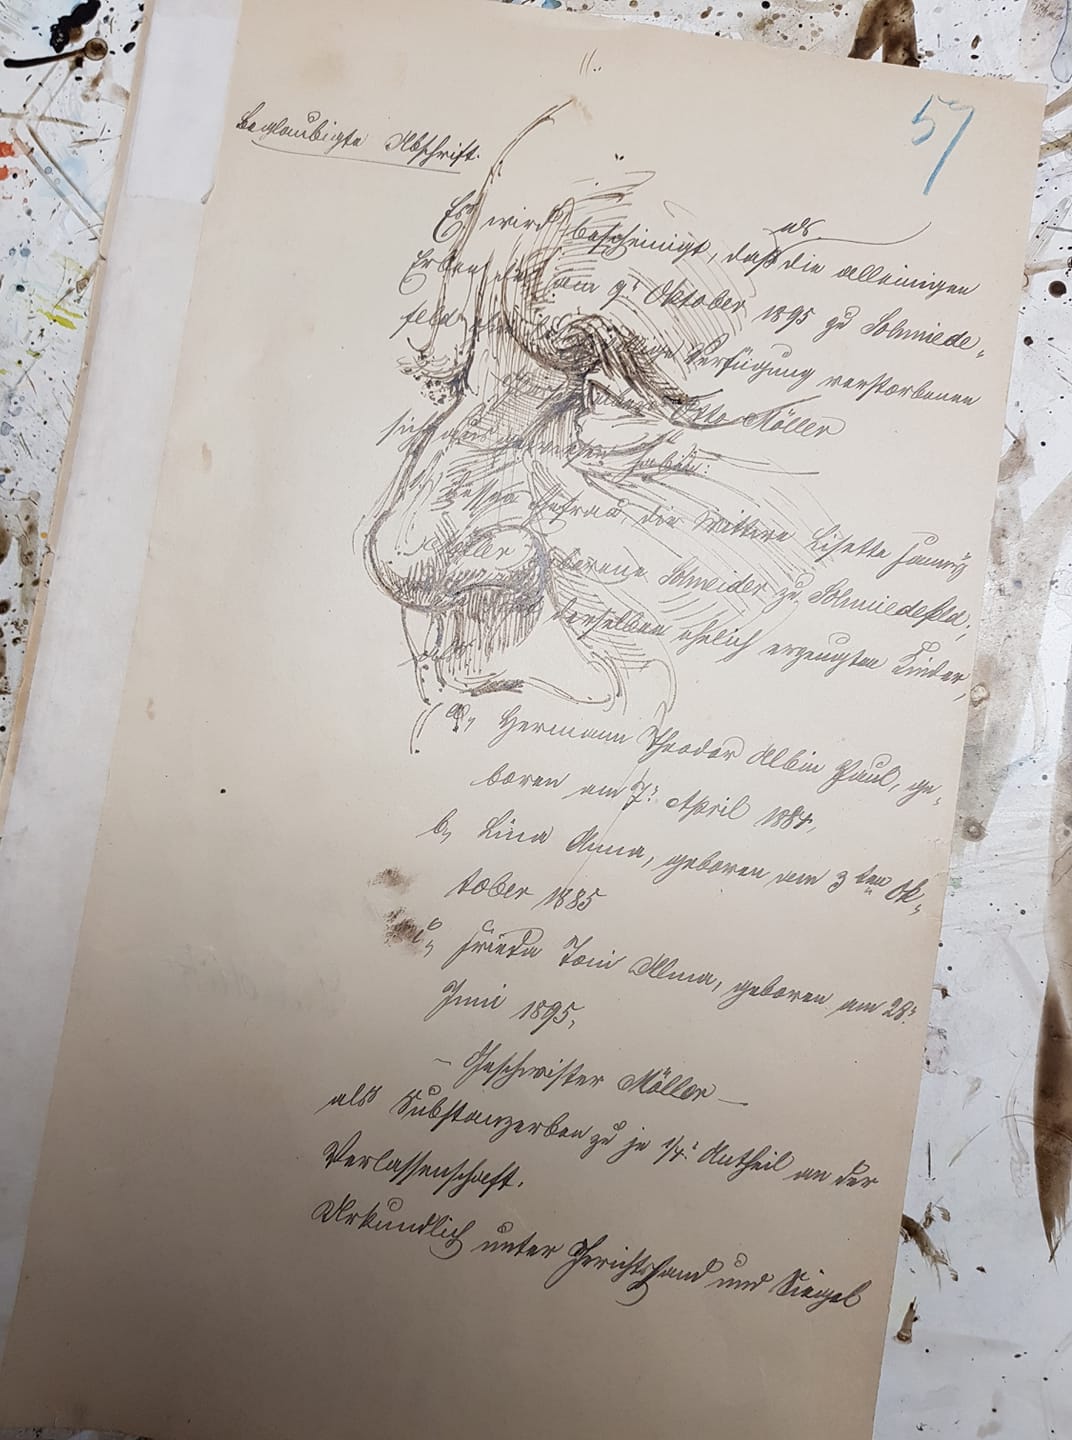 57
Beglaubigte Abschrift.
Es wird bescheinigt, daß die alleinigen
als
Erben des am 9. Oktober 1895 zu Schmiede-
feld ohne Verfügung verstorbenen
Otto Möller
sich ausgewiesen haben:
dessen Ehefrau, die Wittwe Lisette Fanny
Möller geborene Schneider zu Schmiedefeld,
derselben ehelich erzeugten Kinder,
a, Hermann Theodor Albin Paul, ge-
boren am 7. April 1884,
b, Lina Anna, geboren am 3ten Ok-
tober 1885
c, Frieda Toni Alma, geboren am 28.
Juni 1895,
- Geschwister Möller -
als Substanzerben zu je 1/4. Antheil an der
Verlassenschaft.
Urkundlich unter Gerichtshand und Siegel